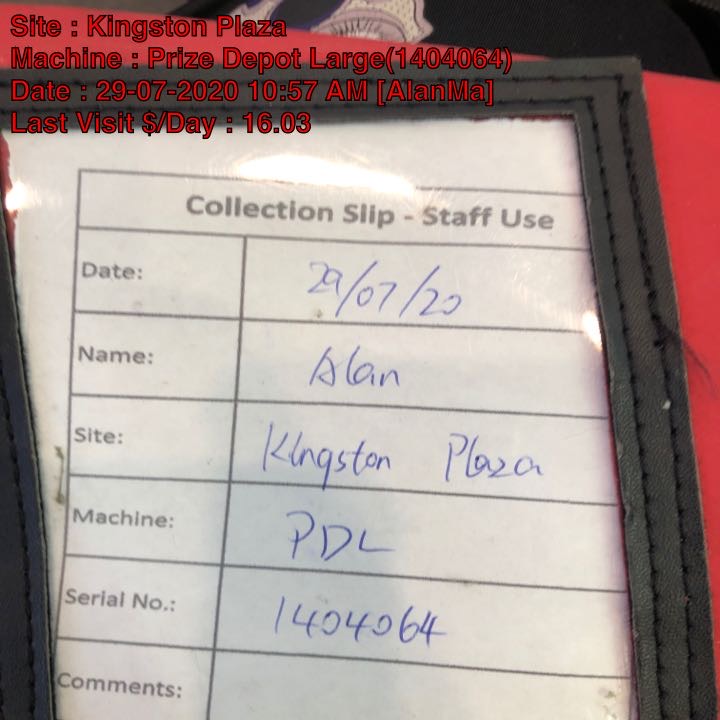 Site : Kingston Plaza
Machine : Prize Depot Large(1404064)
Date : 29-07-2020 10:57 AM [AlanMa]
Last Visit $/Day : 16.03
Collection Slip - Staff Use
Date: 29/07/20
Name: Alan
Site: Kingston Plaza
Machine: PDL
Serial No.: 1404064
Comments: